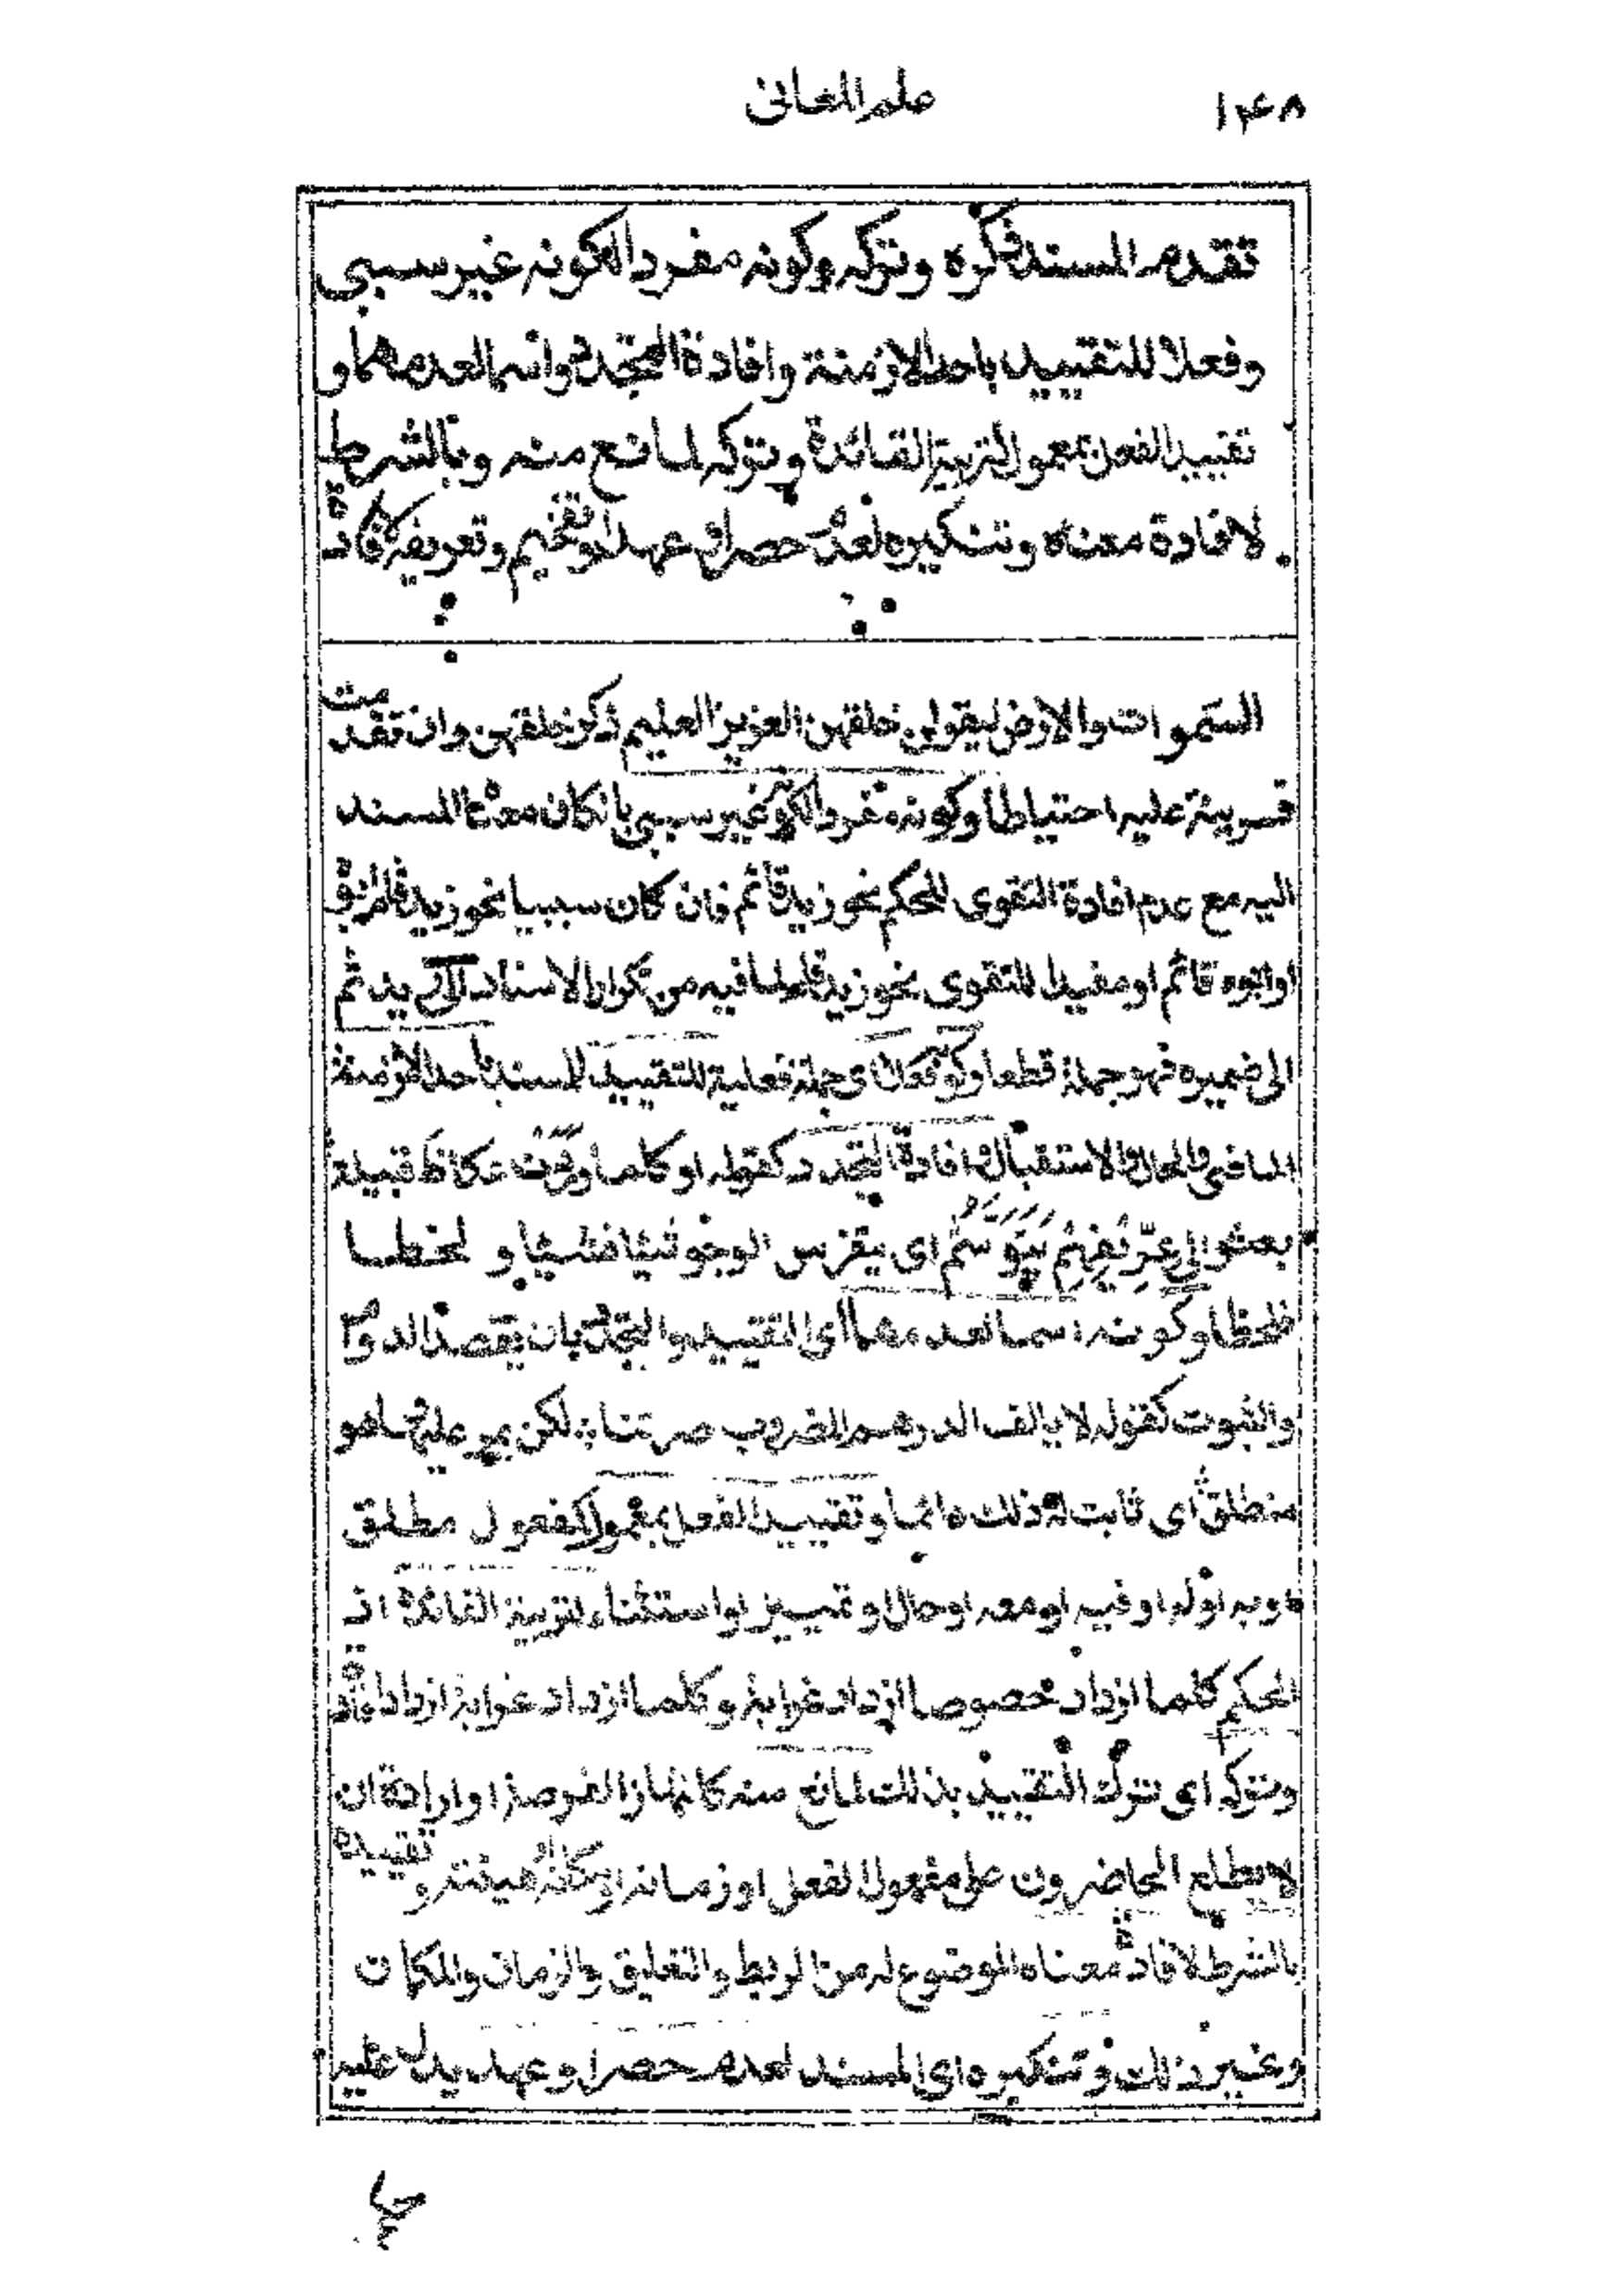 علم المعانى
١٤٨
تقدم المسند ذكره وتركه وكونه مفردا لكونه غير سببى
وفعلا للتقييد باحد الازمنة وافادة التجدد واسما لعدمهما و
تقييد الفعل بمعمول لتربية الفائدة وتركه لمانع منه وبالشرط
لافادة معناه وتنكيره لعدم حصر او عهد او تفخيم وتعريفه لافادة
السموات والارض ليقولن خلقهن العزيز العليم ذكر خلقهن وان تقدمت
قرينة عليه احتياطا وكونه مفردا لكونه غير سببى بان كان معناه المسند
اليه مع عدم افادة التقوى للحكم نحو زيد قائم فان كان سببيا نحو زيد
او ابوه قائم او مفيدا للتقوى نحو زيد قام لما فيه من تكرار الاسناد الى زيد ثم
الى ضميره فهو جملة قطعا وكونه فعلا اى جملة فعلية لتقييد المسند باحد الازمنة
الماضى والحال والاستقبال وافادة التجدد كقوله او كلما وردت عكاظ قبيلة
بعثوا الى عريفهم يتوسم اى يتفرس الوجوه شيئا فشيئا و لحظا
فلحظا وكونه اسما لعدمهما اى التقييد والتجدد بان يقصد الدوام
والثبوت كقوله لا يالف الدرهم المضروب صرتنا : لكن يمر عليها وهو
منطلق اى ثابت له ذلك دائما وتقييد الفعل بمعمول كمفعول مطلق
او به او له او فيه او معه او حال او تمييز او استثناء لتربية الفائدة اذ
الحكم كلما ازداد خصوصا ازداد غرابة وكلما ازداد غرابة ازداد افادة
وتركه اى ترك التقييد بذلك لمانع منه كانتهاز الفرصة او ارادة ان
لا يطلع الحاضرون على مفعول الفعل او زمانه او مكانه او هيئته و تقييده
بالشرط لافادة معناه الموضوع له من الربط والتعليق والزمان والمكان
وغير ذلك وتنكيره اى المسند لعدم حصر او عهد يدل عليه